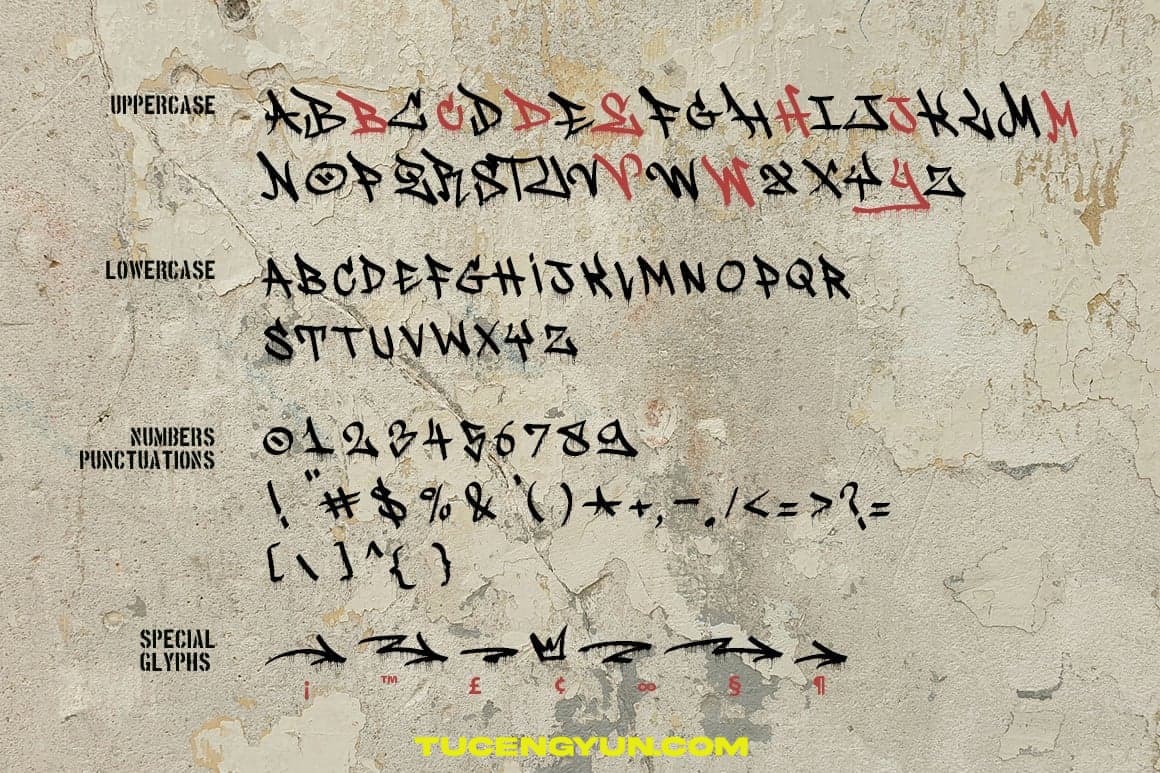 UPPERCASE
ABBCCDDEEFGHHIJJKLMM
NOPQRSTUVVWWXXYYZ
LOWERCASE
ABCDEFGHiJKlMNOPQR
STTUVWXYZ
NUMBERS
PUNCTUATIONS
0123456789
! " # $ % & ' ( ) * + , - . / < = > ? =
[ \ ] ^ { }
SPECIAL
GLYPHS
¡ ™ £ ¢ ∞ § ¶
TUCENGYUN.COM